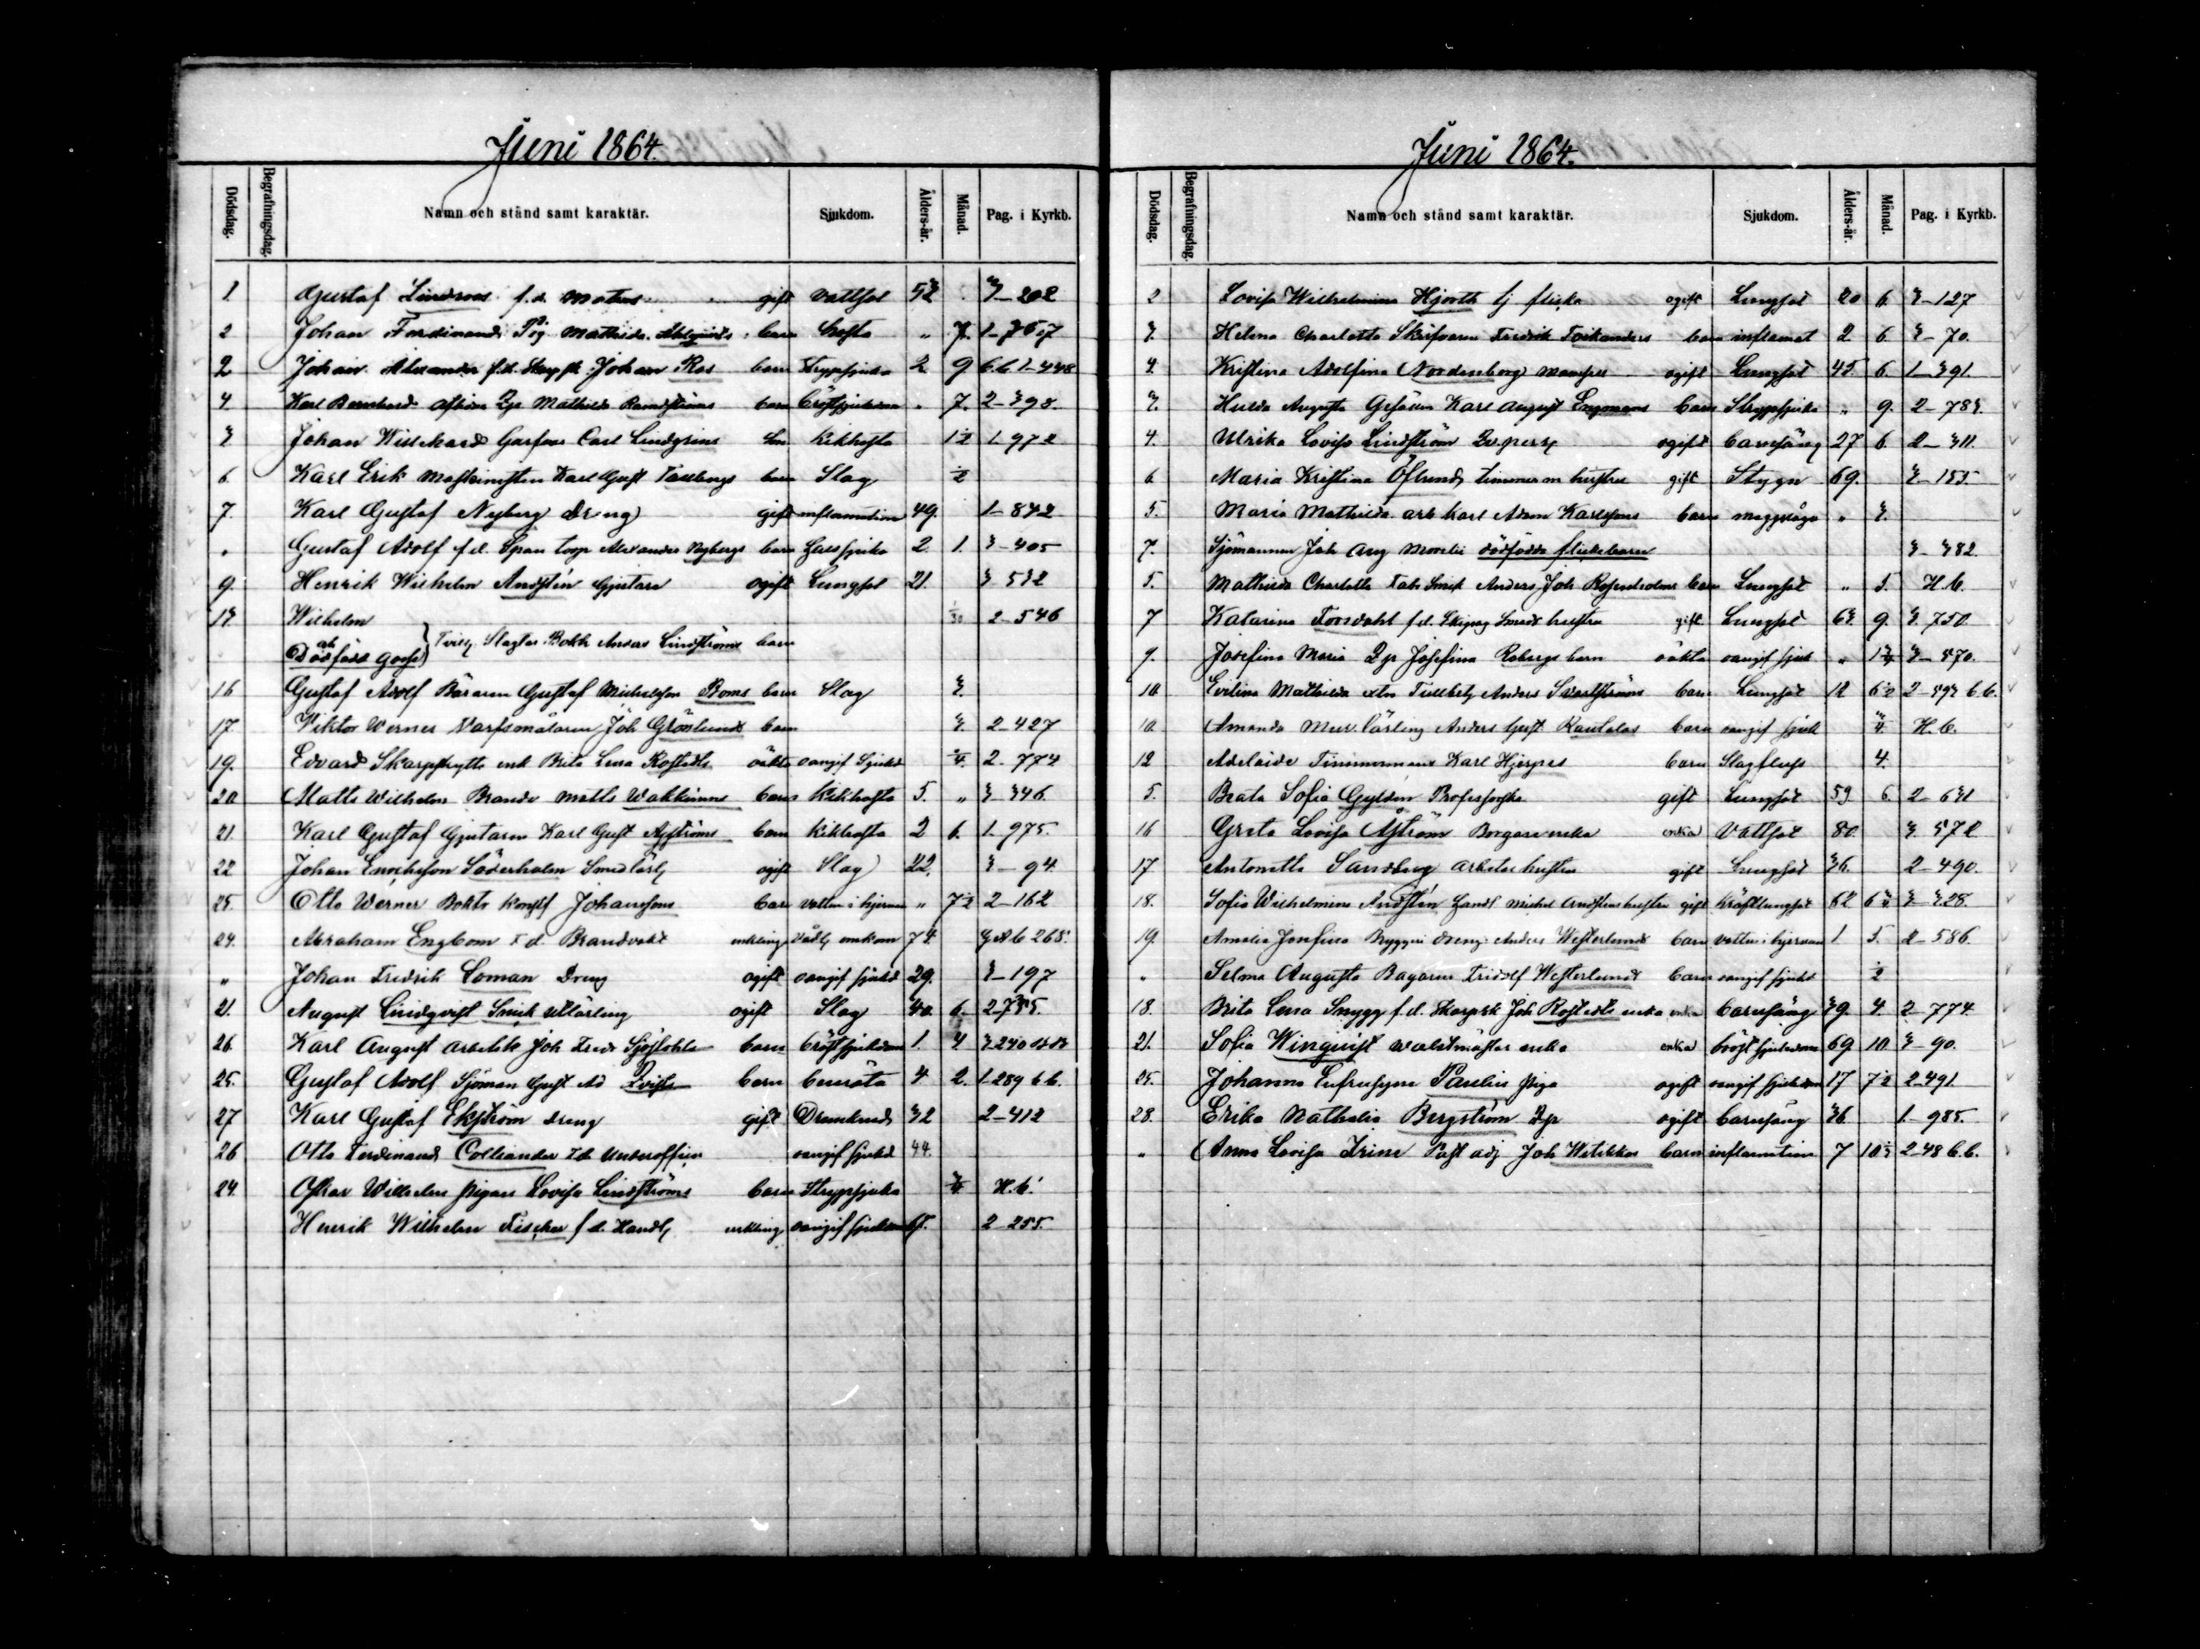 Juni 1864.
Dödsdag. Begrafningsdag. Namn och stånd samt karaktär. Sjukdom. Ålders-år. Månad. Pag. i Kyrkb.
1 Gustaf f.d. gift vattsot 52 3-202
2 Johan Ferdinand Pig Mathilda Ahlqvists barn hosta " 7.
2 Johan Alexander f.d. Johan Ros barn Strypsjuka 2 9 b.b. 1-448
4. Karl Bernhard Qp Mathilda Randströms barn bröstsjukdom . 7. 2-398.
3 Johan Willehard Garfvar Carl Lindgrens son kikhosta 1½ 1-972
6. Karl Erik Maskinisten Karl Gust Tallbergs barn Slag ½
7. Karl Gustaf Nyberg dreng gift inflamation 49. 1-842
" Gustaf Adolf f.d. Span torp Alexander Nybergs barn Halssjuka 2 1. 3-405
9. Henrik Wilhelm Andstén Gjutare ogift Lungsot 21. 3-532
13. Wilhelm 1/30 2-546
och Dödfödd gosse Tvill. Slagtar Bokh Anders Lindströms barn
16 Gustaf Adolf Bäraren Gustaf Michelsson Boms barn Slag 3.
17. Viktor Werner Varfsmålaren Joh Grönlunds barn 3. 2-427
19. Edvard Skarpskytts enk Brita Lena Rostedts oäkta oangif Sjukd ¾. 2-774
20 Matts Wilhelm Brandv Matts Wakkinens barn Kikhosta 5. " 3-346.
21. Karl Gustaf Gjutaren Karl Gust Åströms barn kikhosta 2 6. 1-975.
22 Johan Enochsson Söderholm Smedlärl ogift Slag 22. 3-94.
25. Otto Werner Bokh Konst Johanssons barn vatten i hjernan " 7½ 2-162
24. Abraham Engbom f d. Brandvakt enkling Vådl. omkom 74. 3 b 265.
" Johan Fredrik Loman Dreng ogift oangif sjukd 29. 3-197
21. August Lindqvist Smed utlärling ogift Slag 40. 6. 2-785.
26. Karl August Arbetsk Joh Fredr Sjöstedts barn bröstsjukdom 1. 4 3-240
25. Gustaf Adolf Sjöman Gust Ad Qvists barn benröta 4 2. 1-289 b.b.
27 Karl Gustaf Ekström dreng gift Drunknad 32 2-412
26 Otto Ferdinand Colliander f.d. Underofficer oangif sjukd 44.
24. Oskar Wilhelm Pigan Lovisa Lindströms barn Strypsjuka ¾ H.b.
Henrik Wilhelm Fischer f.d. Handl enkling oangif sjukdom 65. 2-255.
Juni 1864.
Dödsdag. Begrafningsdag. Namn och stånd samt karaktär. Sjukdom. Ålders-år. Månad. Pag. i Kyrkb.
2 Lovisa Wilhelmina Hjorth flicka ogift Lungsot 20 6. 3-127
3. Helena Charlotta Skrifvaren Fredrik Toikanders barn inflamat 2 6 3-70.
4. Kristina Adolfina Nordenberg mamsell ogift Lungsot 45. 6. 1-391.
3. Hulda Augusta Gesällen Karl August Engmans barn Strypsjuka " 9. 2-783.
4. Ulrika Lovisa Lindström Qvpers ogift barnsäng 27 6. 2-311.
6 Maria Kristina Öflund timmerm hustru gift Stygn 69. 3-155.
5. Maria Mathilda arb Karl Adam Karlssons barn magplåga " 3.
7. Sjömannen Joh Aug dödfödda flickebarn 3-382.
5. Mathilda Charlotta Fabr Smed Anders Joh Rosenholms barn Lungsot " 5. H.b.
7 Katarina Forsdahl f.d. Skepsg Smeds hustru gift Lungsot 63. 9. 3-750.
9. Josefina Maria Qp Josefina Robergs barn oäkta oangif sjuk " 1¾ 3-870.
10. Evelina Mathilda Anders Svartströms barn Lungsot 12 6½ 2-393 b.b.
10. Amanda Mur.lärling Anders Gust Rautelas barn oangif sjuk ¾. H.b.
12 Adelaide Timmermans Karl Hjerpes barn Slagfluss 4.
5. Beata Sofia Gyldén Professorska gift Lungsot 59 6. 2-631
16 Greta Lovisa Åström Borgare enka enka Vattsot 80. 3-572
17 Antonetta Sandberg arbetar hustru gift Lungsot 36. 2-490.
18. Sofia Wilhelmina Andstén Handl Michel Andstens hustru gift kräftlungsot 62 6¾ 3-328.
19. Amalia Josefina Bryggeri dreng Anders Westerlunds barn vatten i hjernan 1. 5. 2-586.
" Selma Augusta Bagaren Fridolf Westerlunds barn oangif sjukd ½
18. Brita Lena Snygg f.d. Skarpsk Joh Rostedts enka enka barnsäng 39. 4. 2-774
21. Sofia Winqvist waktmästar enka enka bröstsjukdom 69 10 3-90.
25. Johanna Eufrosyne Paulin piga ogift oangif sjukdom 17 7½ 2-491
28. Erika Nathalia Bergström Qp ogift barnsäng 36 1-985.
" Anna Lovisa Irene Past adj Joh Wetikkos barn inflamation 7 10½ 2-48 b.b.